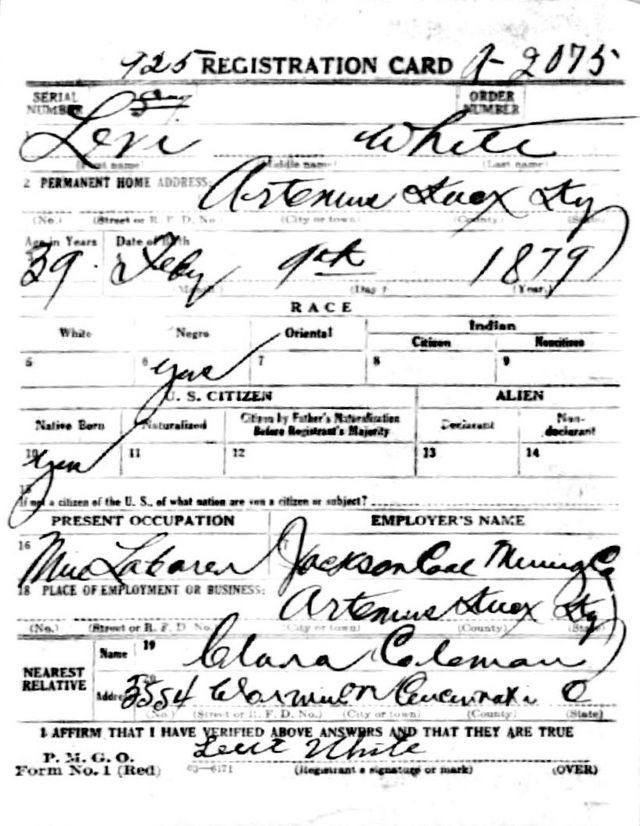 925 REGISTRATION CARD A-2075
SERIAL NUMBER ORDER NUMBER
Levi White
(First name) (Middle name) (Last name)
2 PERMANENT HOME ADDRESS:
Artemus Knox Ky
(No.) (Street or R. F. D. No.) (City or town) (County) (State)
Age in Years Date of Birth
39 Feby 9th 1879
(Month) (Day) (Year)
RACE
White Negro Oriental Indian
Citizen Noncitizen
5 6 yes 7 8 9
U. S. CITIZEN ALIEN
Native Born Naturalized Citizen by Father's Naturalization Before Registrant's Majority Declarant Non-declarant
10 yes 11 12 13 14
15
If not a citizen of the U. S., of what nation are you a citizen or subject?
PRESENT OCCUPATION EMPLOYER'S NAME
16 Mine Laborer Jackson Coal Mining Co
18 PLACE OF EMPLOYMENT OR BUSINESS:
Artemus Knox Ky
(No.) (Street or R. F. D. No.) (City or town) (County) (State)
NEAREST RELATIVE
Name 19 Clara Coleman
Address 20 3554 Cincinnati O
(No.) (Street or R. F. D. No.) (City or town) (County) (State)
I AFFIRM THAT I HAVE VERIFIED ABOVE ANSWERS AND THAT THEY ARE TRUE
P. M. G. O.
Form No. 1 (Red) 03—6171 Levi White
(Registrant's signature or mark) (OVER)